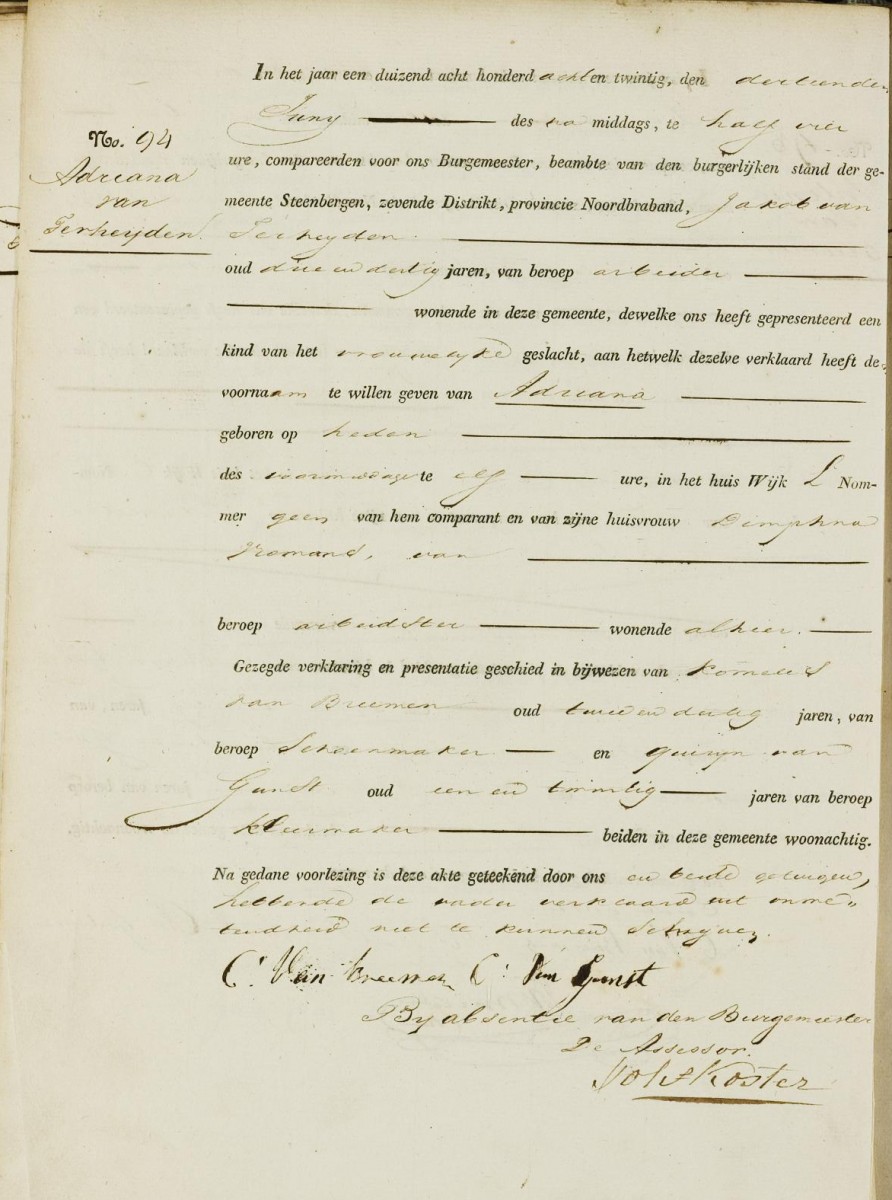 In het jaar een duizend acht honderd acht en twintig, den dertienden
Juny des na middags, te half vier
No. 94
ure, compareerden voor ons Burgemeester, beambte van den burgerlijken stand der ge-
Adriana
van
Terheyden.
meente Steenbergen, zevende Distrikt, provincie Noordbraband, Jakob van
Terheyden
oud drie en dertig jaren, van beroep arbeider
wonende in deze gemeente, dewelke ons heeft gepresenteerd een
kind van het vrouwelyke geslacht, aan hetwelk dezelve verklaard heeft de
voornaam te willen geven van Adriana
geboren op heden
des voormiddags te elf ure, in het huis Wijk L Nom-
mer geen van hem comparant en van zijne huisvrouw Dimphna
van
beroep arbeidster wonende alhier.
Gezegde verklaring en presentatie geschied in bijwezen van Kornelis
van Breemen oud twee en dertig jaren, van
beroep Schoenmaker en Quiryn van
Gunst oud een en twintig jaren van beroep
kleermaker beiden in deze gemeente woonachtig.
Na gedane voorlezing is deze akte geteekend door ons en beide getuigen,
hebbende de vader verklaard uit onwe„
tendheid niet te kunnen schryven.
C: Van Breemen Q: Van Gunst
By absentie van den Burgemeester
De Assessor.
Koster